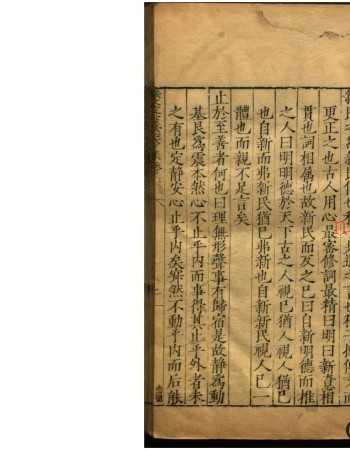 更正之也古人用心最審修詞最精曰明曰新意相
貫也詞相屬也故新民而反之已曰自新明德而推
之人曰明明德於天下古之人視已猶人視人猶已
也自新而弗新民猶已弗新也自新新民視人已一
體也而親不足言矣
止於至善者何也曰理無形聲事有歸宿是故靜為動
基艮為震本然心不止乎內而事得其止乎外者未
之有也定靜安心止乎內矣寂然不動乎內而后能